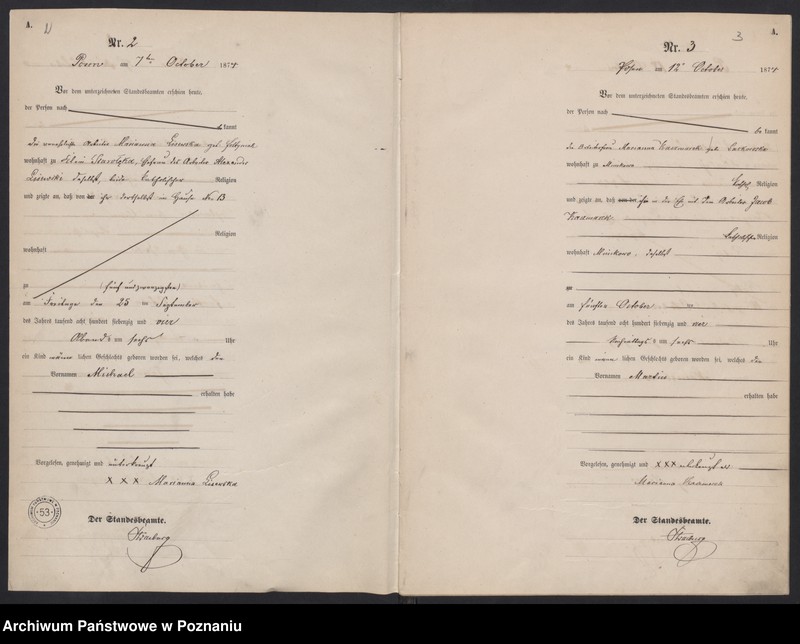 A.
Nr. 2
Posen am 7ten October 1874
Vor dem unterzeichneten Standesbeamten erschien heute,
der Person nach
be kannt
die verehelichte Arbeiter Marianna Lisewska geb.
wohnhaft zu Klein Starolęka, Ehefrau des Arbeiter Alexander
Lisewski daselbst, beide katholischer Religion
und zeigte an, daß von ihr dortselbst im Hause No 13
Religion
wohnhaft
zu (fünf und zwanzigsten)
am Freitage den 25 ten September
des Jahres tausend acht hundert siebenzig und vier
Abends um sechs Uhr
ein Kind männ lichen Geschlechts geboren worden sei, welches den
Vornamen Michael
erhalten habe
Vorgelesen, genehmigt und unterkreuzt
X X X Marianna Lisewska
53
Der Standesbeamte.
A.
3
Nr. 3
Posen am 12t October 1874
Vor dem unterzeichneten Standesbeamten erschien heute,
der Person nach
be kannt
die Arbeiterfrau Marianna Kaczmarek geb.
wohnhaft zu Minikowo
kathol. Religion
und zeigte an, daß von der ihr in der Ehe mit dem Arbeiter Jacob
Kaczmarek
katholischer Religion
wohnhaft Minikowo daselbst
zu
am fünften October
des Jahres tausend acht hundert siebenzig und vier
Nachmittags um sechs Uhr
ein Kind männ lichen Geschlechts geboren worden sei, welches den
Vornamen Martin
erhalten habe
Vorgelesen, genehmigt und X X X
Marianna Kaczmarek
Der Standesbeamte.
Archiwum Państwowe w Poznaniu